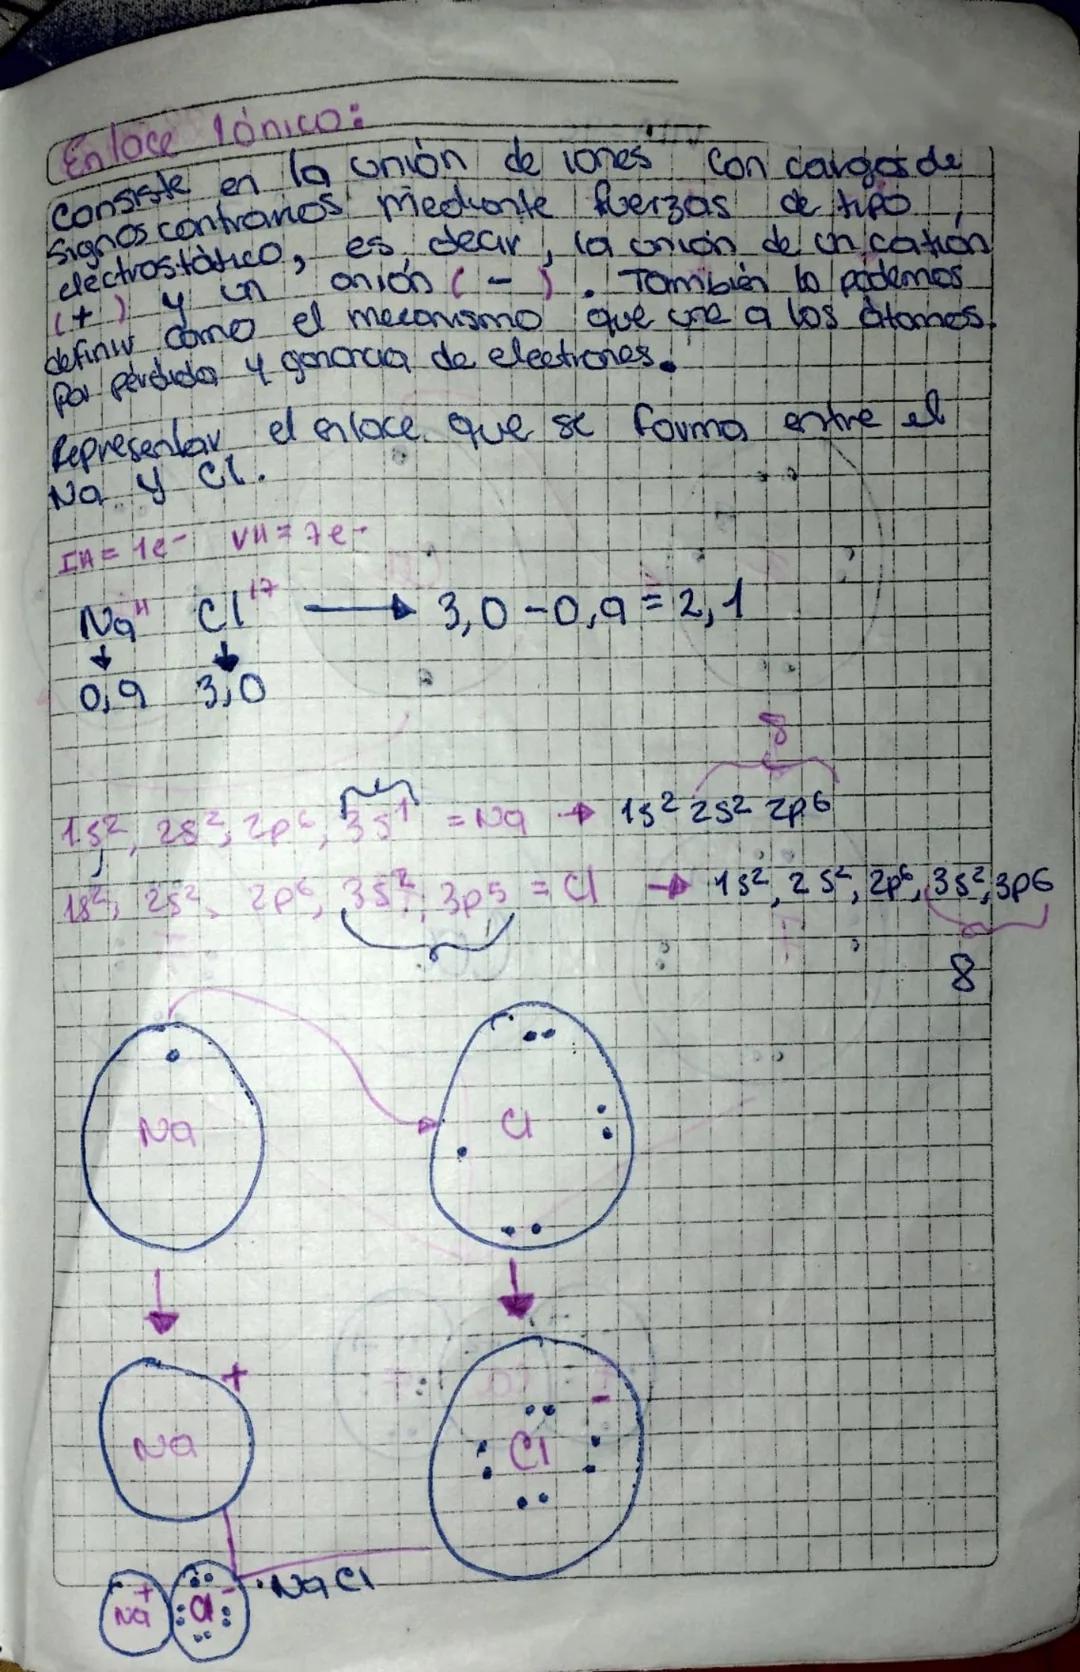 Enlace Iónico:
Consiste en la unión de iones con cargas de
signos contrarios mediante fuerzas de tipo
electrostático, es decir, la unión de un catión
(+) y un anión (-). También lo podemos
definir como el mecanismo que une a los átomos
por pérdida y ganancia de electrones.
Representar el enlace que se forma entre el
Na y Cl.
IA = 1e- VII = 7e-
Na¹¹ Cl¹⁷ → 3,0 - 0,9 = 2,1
0,9 3,0
8
1s², 2s², 2p⁶, 3s¹ = Na → 1s² 2s² 2p6
1s², 2s², 2p⁶, 3s², 3p5 = Cl → 1s², 2s², 2p⁶, 3s², 3p6
8
Na Cl
Na + Cl -
Na + Cl - NaCl